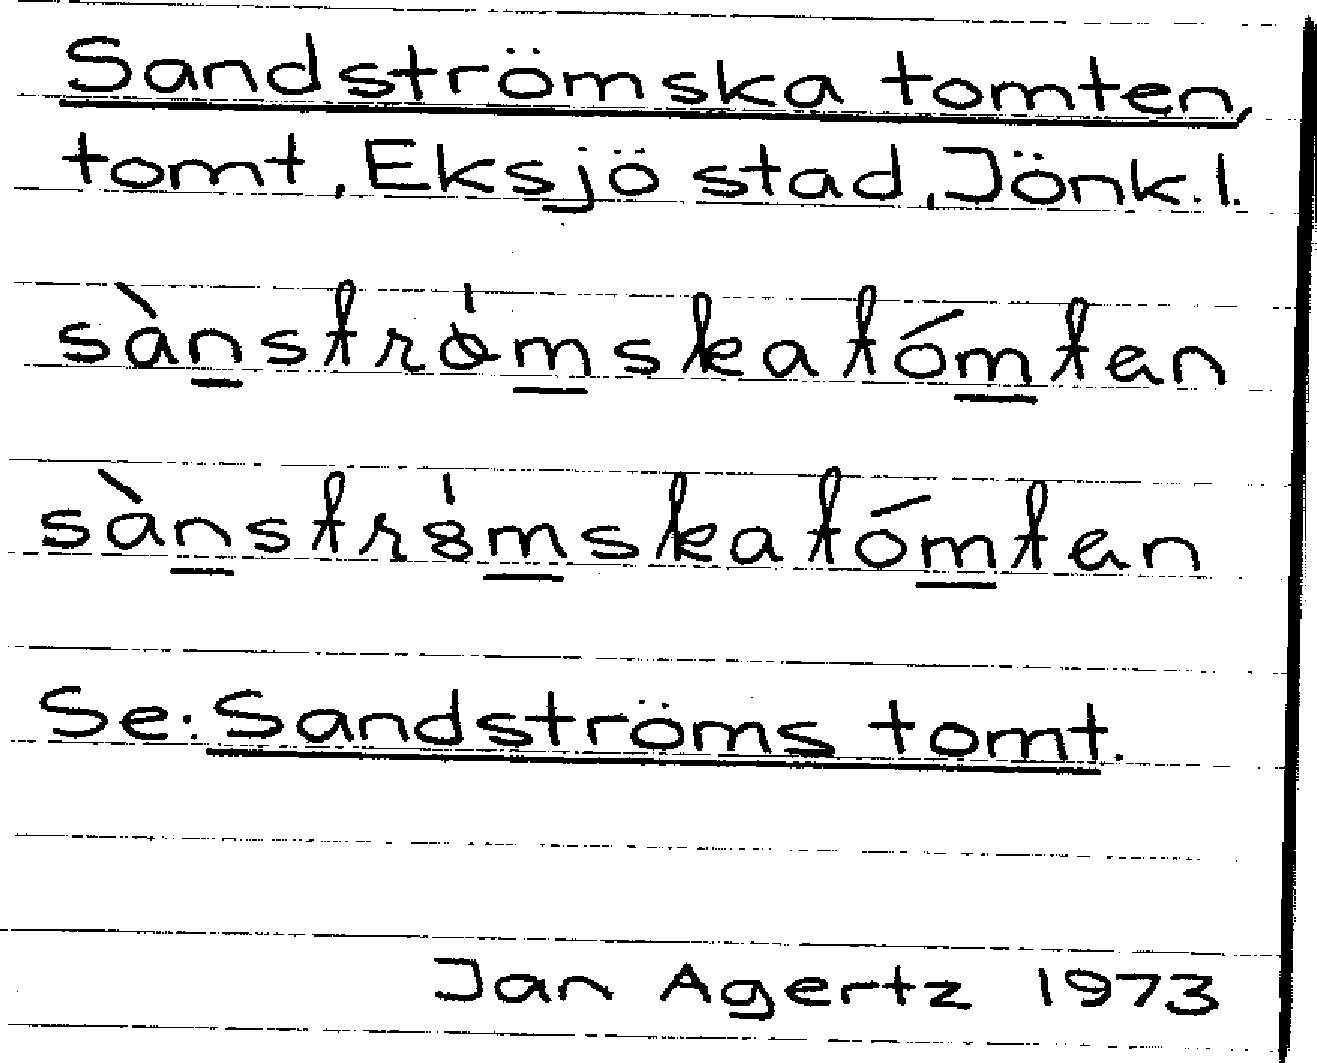 Sandströmska tomten,
tomt, Eksjö stad, Jönk. l.
sànstrɵ̀mskatómtan
sànstr8̍mskatómtan
Se: Sandströms tomt.
Jan Agertz 1973